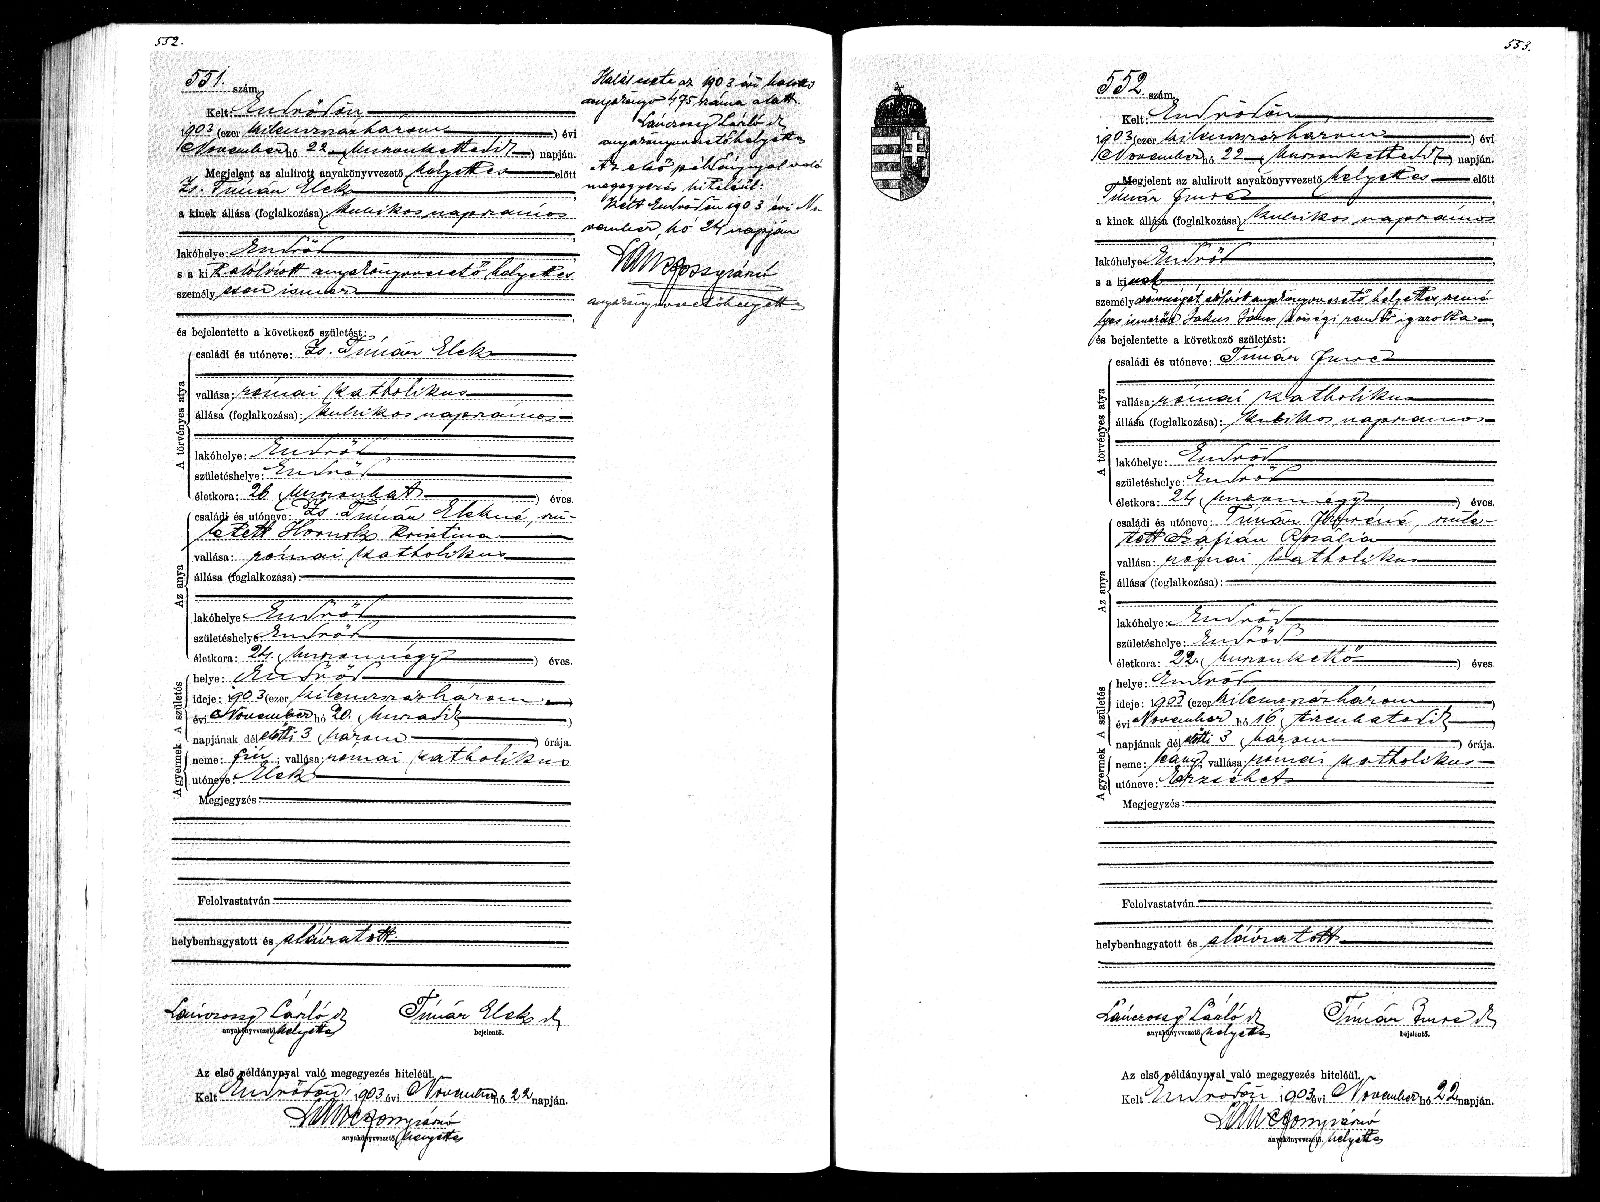 552.
551. szám
Kelt: Endrődön
1903 (ezer kilenczszázhárom) évi
November hó 22 huszonkettedik) napján.
Megjelent az alulirott anyakönyvvezető helyettes előtt
Zs. Timár Elek
a kinek állása (foglalkozása): kubikos napszámos
lakóhelye: Endrőd
s a kit alólirott anyakönyvvezető helyettes
személyesen ismer
és bejelentette a következő születést:
A törvényes atya
családi és utóneve: Zs. Timár Elek
vallása: római katholikus
állása (foglalkozása): kubikos napszámos
lakóhelye: Endrőd
születéshelye: Endrőd
életkora: 26 huszonhat) éves.
Az anya
családi és utóneve: Zs. Timár Elekné, szü-
letett Hornok Krisztina
vallása: római katholikus
állása (foglalkozása):
lakóhelye: Endrőd
születéshelye: Endrőd
életkora: 24 huszonnégy) éves.
A gyermek A születés
helye: Endrőd
ideje: 1903 (ezer kilenczszázhárom)
évi November hó 20. huszadik)
napjának délelőtti 3 három) órája.
neme: fiú; vallása: római katholikus
utóneve: Elek
Megjegyzés:
Felolvastatván
helybenhagyatott és aláiratott
Lánczossy László sk
anyakönyvvezető helyettes
Timár Elek sk
bejelentő.
Az első példánynyal való megegyezés hiteléül.
Kelt Endrődön 1903 évi November hó 22 napján.
anyakönyvvezető helyettes
Halál esete az 1903 évi halotti
anyakönyv 475 száma alatt.
Lánczossy László sk
anyakönyvvezetőhelyettes
Az első példánynyal való
megegyezés hiteléül:
Kelt Endrődön 1903 évi No-
vember, hó 24 napján
anyakönyvvezetőhelyettes
553.
552. szám
Kelt: Endrődön
1903 (ezer kilenczszázhárom) évi
November hó 22 huszonkettedik) napján.
Megjelent az alulirott anyakönyvvezető helyettes előtt
Timár Imre
a kinek állása (foglalkozása): kubikos napszámos
lakóhelye: Endrőd
s a kinek
személyazonosságát alólirott anyakönyvvezető helyettes szemé-
lyes ismerőse János községi rendőr igazolta
és bejelentette a következő születést:
A törvényes atya
családi és utóneve: Timár Imre
vallása: római katholikus
állása (foglalkozása): kubikos napszámos
lakóhelye: Endrőd
születéshelye: Endrőd
életkora: 24 huszonnégy) éves.
Az anya
családi és utóneve: Timár Imréné, szüle-
tett Rozália
vallása: római katholikus
állása (foglalkozása):
lakóhelye: Endrőd
születéshelye: Endrőd
életkora: 22. huszonkettő) éves
A gyermek A születés
helye: Endrőd
ideje: 1903 (ezer kilenczszázhárom)
évi November hó 16 tizenhatodik)
napjának délelőtti 3 három) órája.
neme: leány; vallása: római katholikus
utóneve: Erzsébet
Megjegyzés:
Felolvastatván
helybenhagyatott és aláiratott
Lánczossy László sk
anyakönyvvezető helyettes
Timár Imre sk
bejelentő.
Az első példánynyal való megegyezés hiteléül.
Kelt Endrődön 1903 évi November hó 22 napján.
anyakönyvvezető helyettes